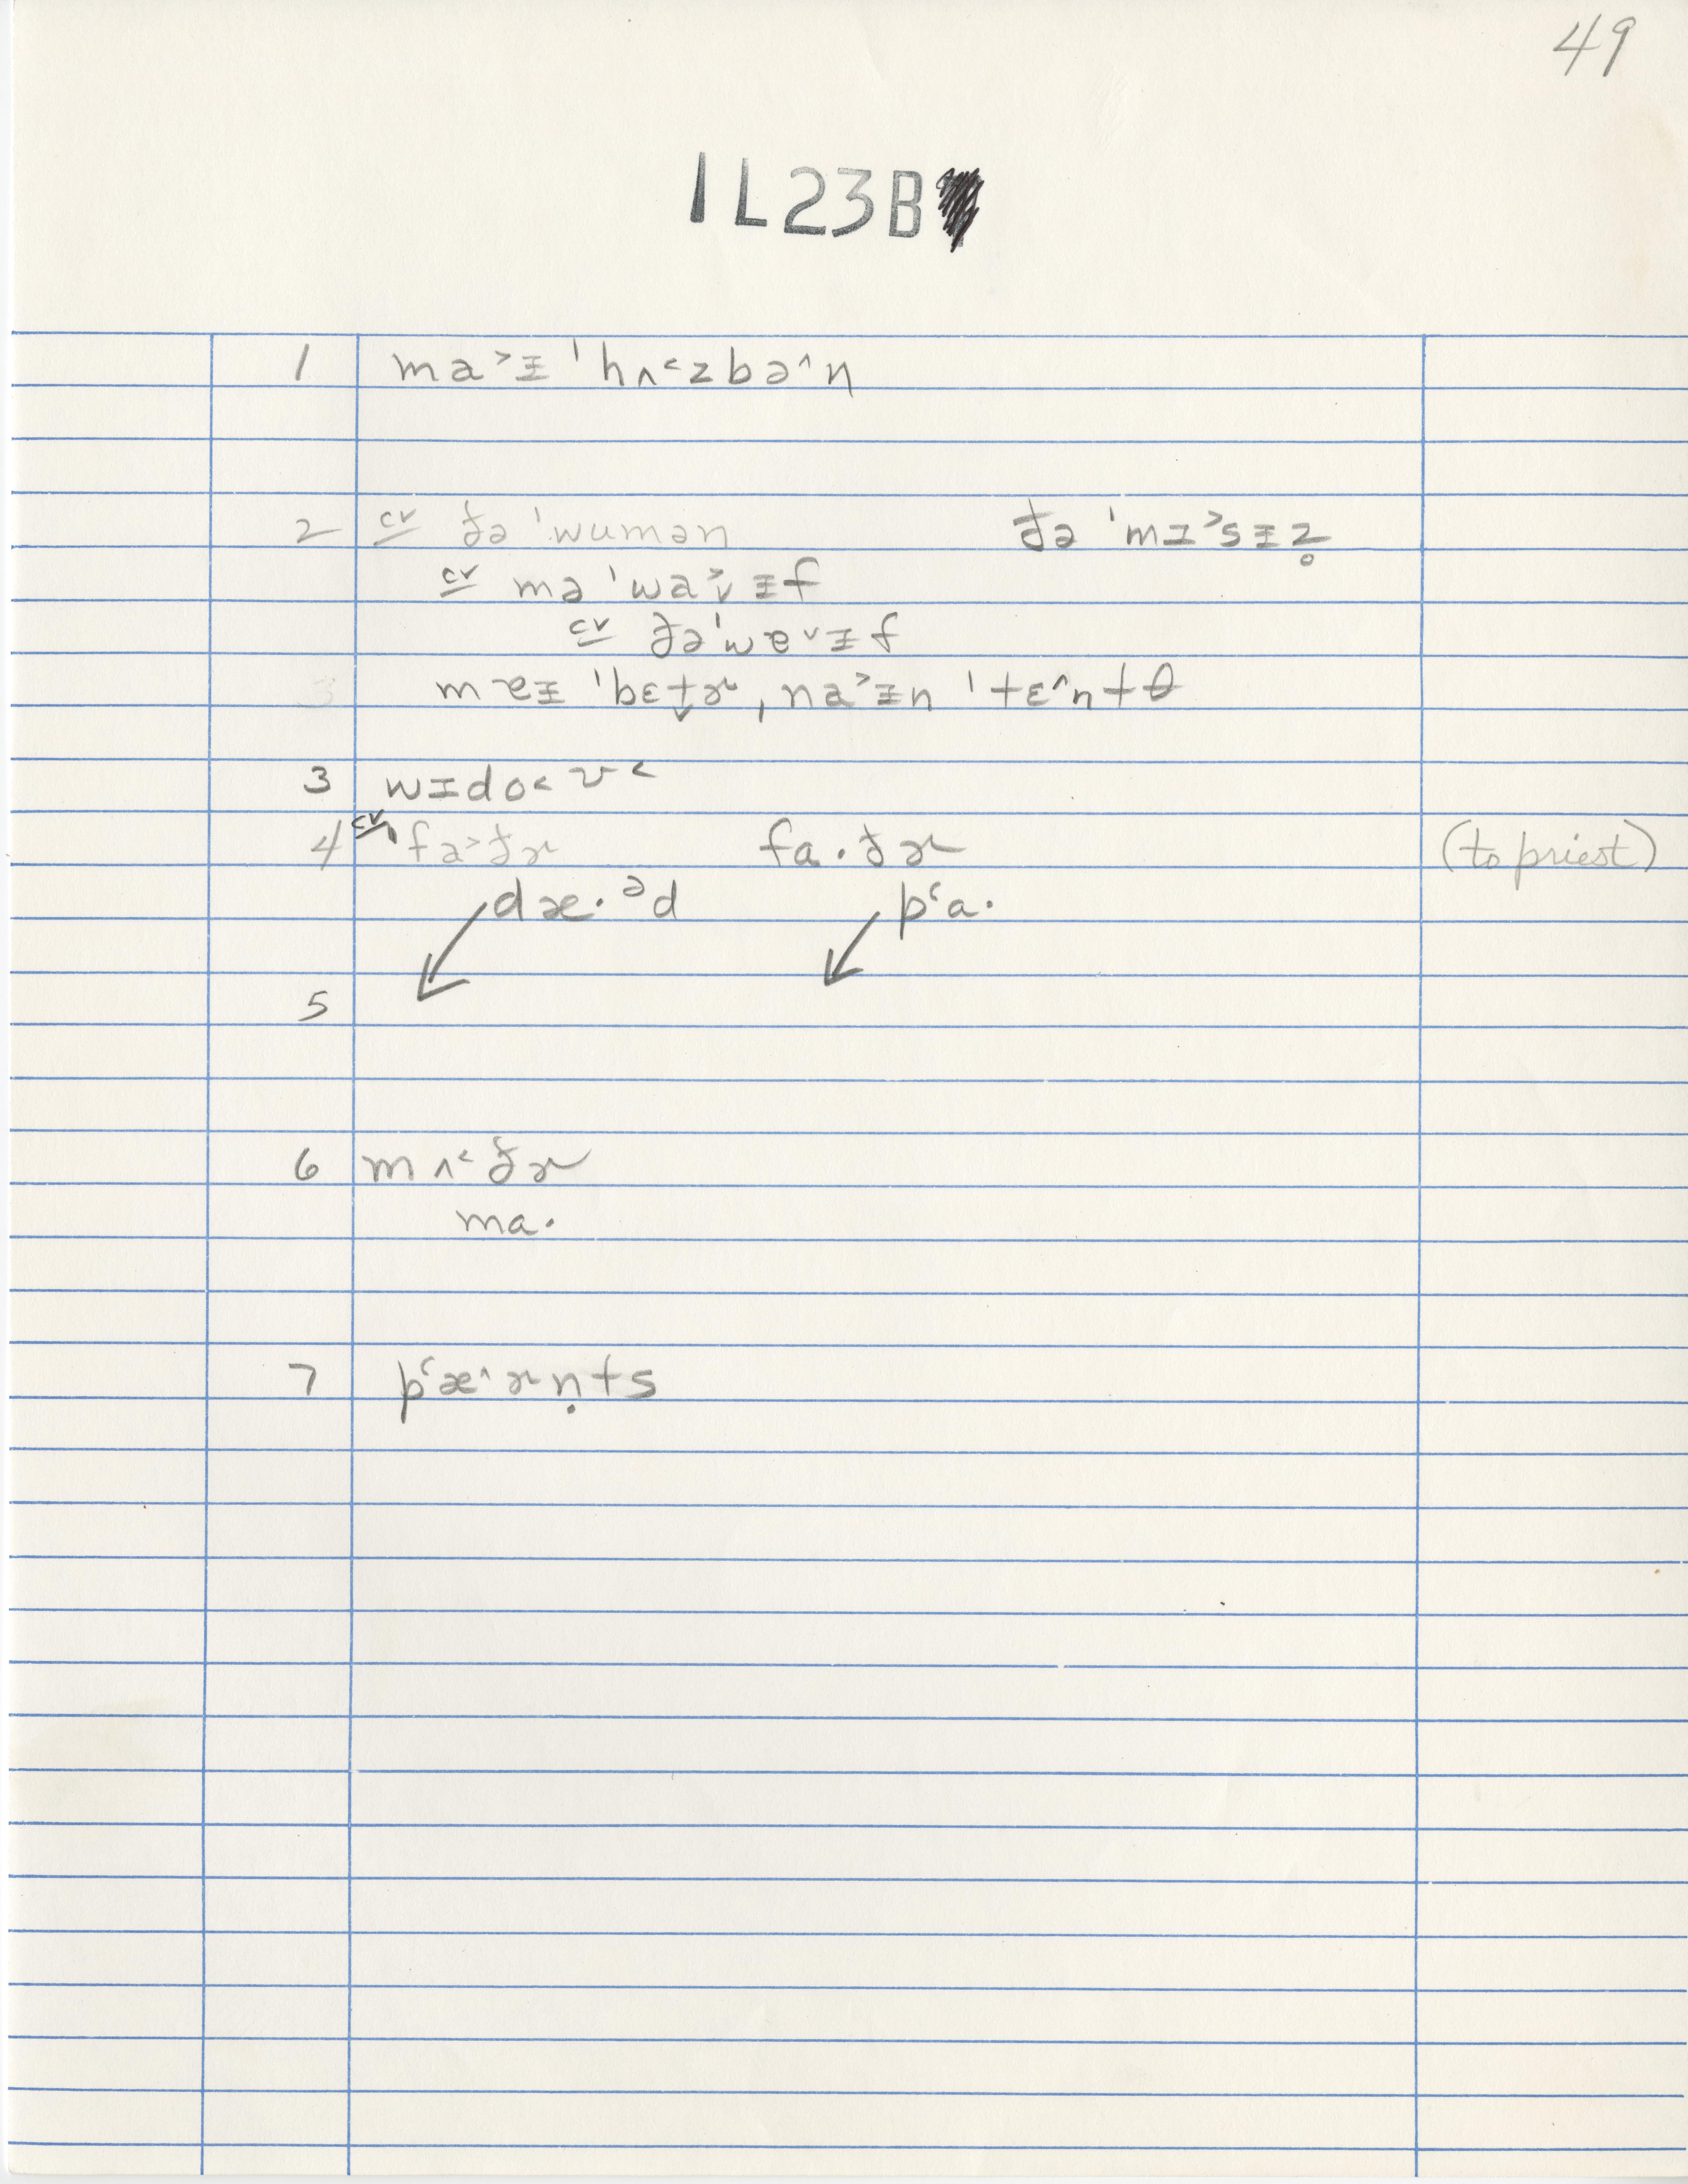 49
1L23B
1 ma˃ɪ̵ ˈhʌ˂zbə^n
2 cv ðə ˈwumən ðə ˈmɪ˃sɪ̵z̥
cv mə ˈwa˃̬ɪ̵f
cv ðə ˈwɐ˅ɪ̵f
mɐɪ̵ ˈbɛt̬ɚ, na˃ɪ̵n ˈtɛ^ntθ
3 wɪdo˂ʊ˂
4 cv fa˃ðɚ fɑ·ðɚ (to priest)
dæ·ᵊd pʻɑ·
5
6 mʌ˂ðɚ
mɑ·
7 pʻæ^ɚṇts